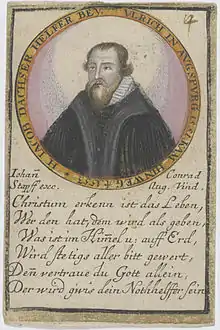 H. IACOB DACHSER HELFER BEY
VLRICH IN AVGSPVRG
14
Iohañ
Conrad
Stapff exc.
Aug. Vind.
Christum erkenn ist das Leben,
Wer den hat, dem wird als geben,
Was ist im Him̃el u: auff Erd,
Wird stetigs aller bitt gewert,
Deñ vertraue du Gott allein,
Der wird gwis dein Nothhelffer sein.